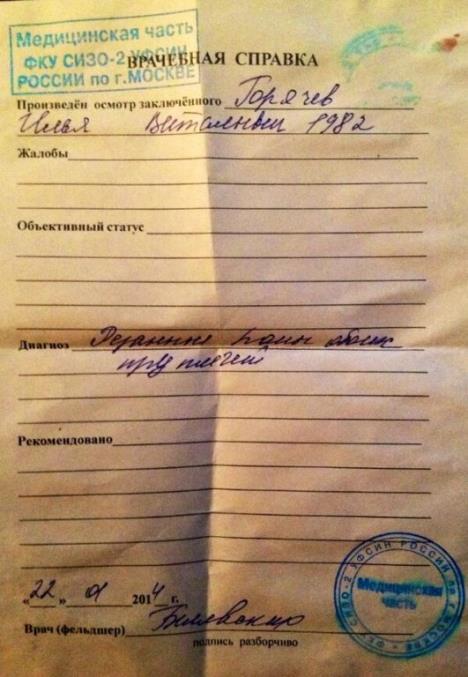 Медицинская часть
ФКУ СИЗО-2 УФСИН
РОССИИ по г.МОСКВЕ
ВРАЧЕБНАЯ СПРАВКА
Произведён осмотр заключённого Горячев
Илья Витальевич 1982
Жалобы
Объективный статус
Диагноз Резанные раны обоих
предплечий
Рекомендовано
«22» 2014 г.
Врач (фельдшер)
подпись разборчиво
ФКУ СИЗО-2 УФСИН РОССИИ ПО Г. МОСКВЕ
Медицинская
часть